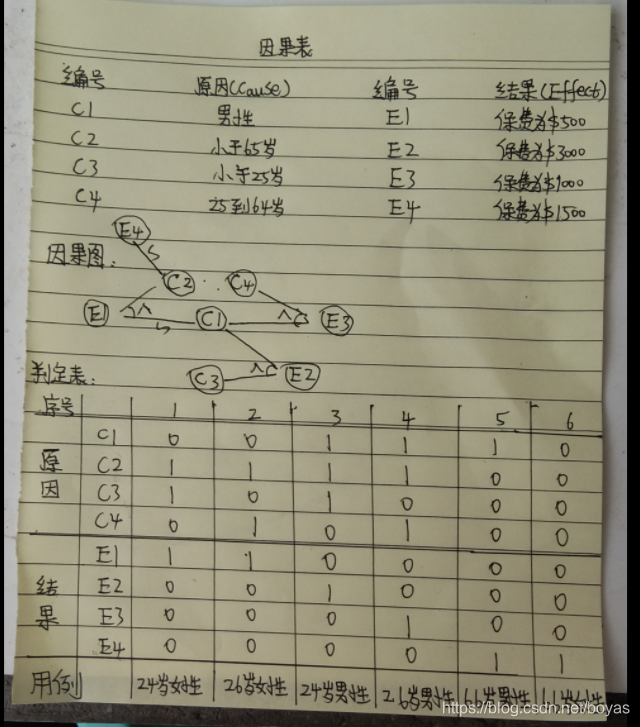 因果表
编号 原因(Cause) 编号 结果(Effect)
C1 男性 E1 保费为$500
C2 小于65岁 E2 保费为$3000
C3 小于25岁 E3 保费为$1000
C4 25到64岁 E4 保费为$1500
E4
因果图:
C2 C4
E1 C1 E3
C3 E2
判定表:
序号 1 2 3 4 5 6
原因
C1 0 0 1 1 1 0
C2 1 1 1 1 0 0
C3 1 0 1 0 0 0
C4 0 1 0 1 0 0
结果
E1 1 1 0 0 0 0
E2 0 0 1 0 0 0
E3 0 0 0 1 0 0
E4 0 0 0 0 1 1
用例 24岁女性 26岁女性 24岁男性 26岁男性
https://blog.csdn.net/boyas